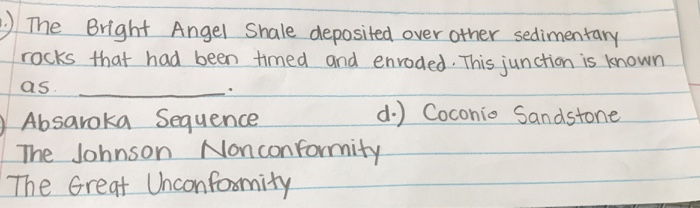 .) The Bright Angel Shale deposited over other sedimentary
rocks that had been timed and enroded. This junction is known
as. ____________.
) Absaroka Sequence d.) Coconio Sandstone
The Johnson Nonconformity
The Great Unconformity